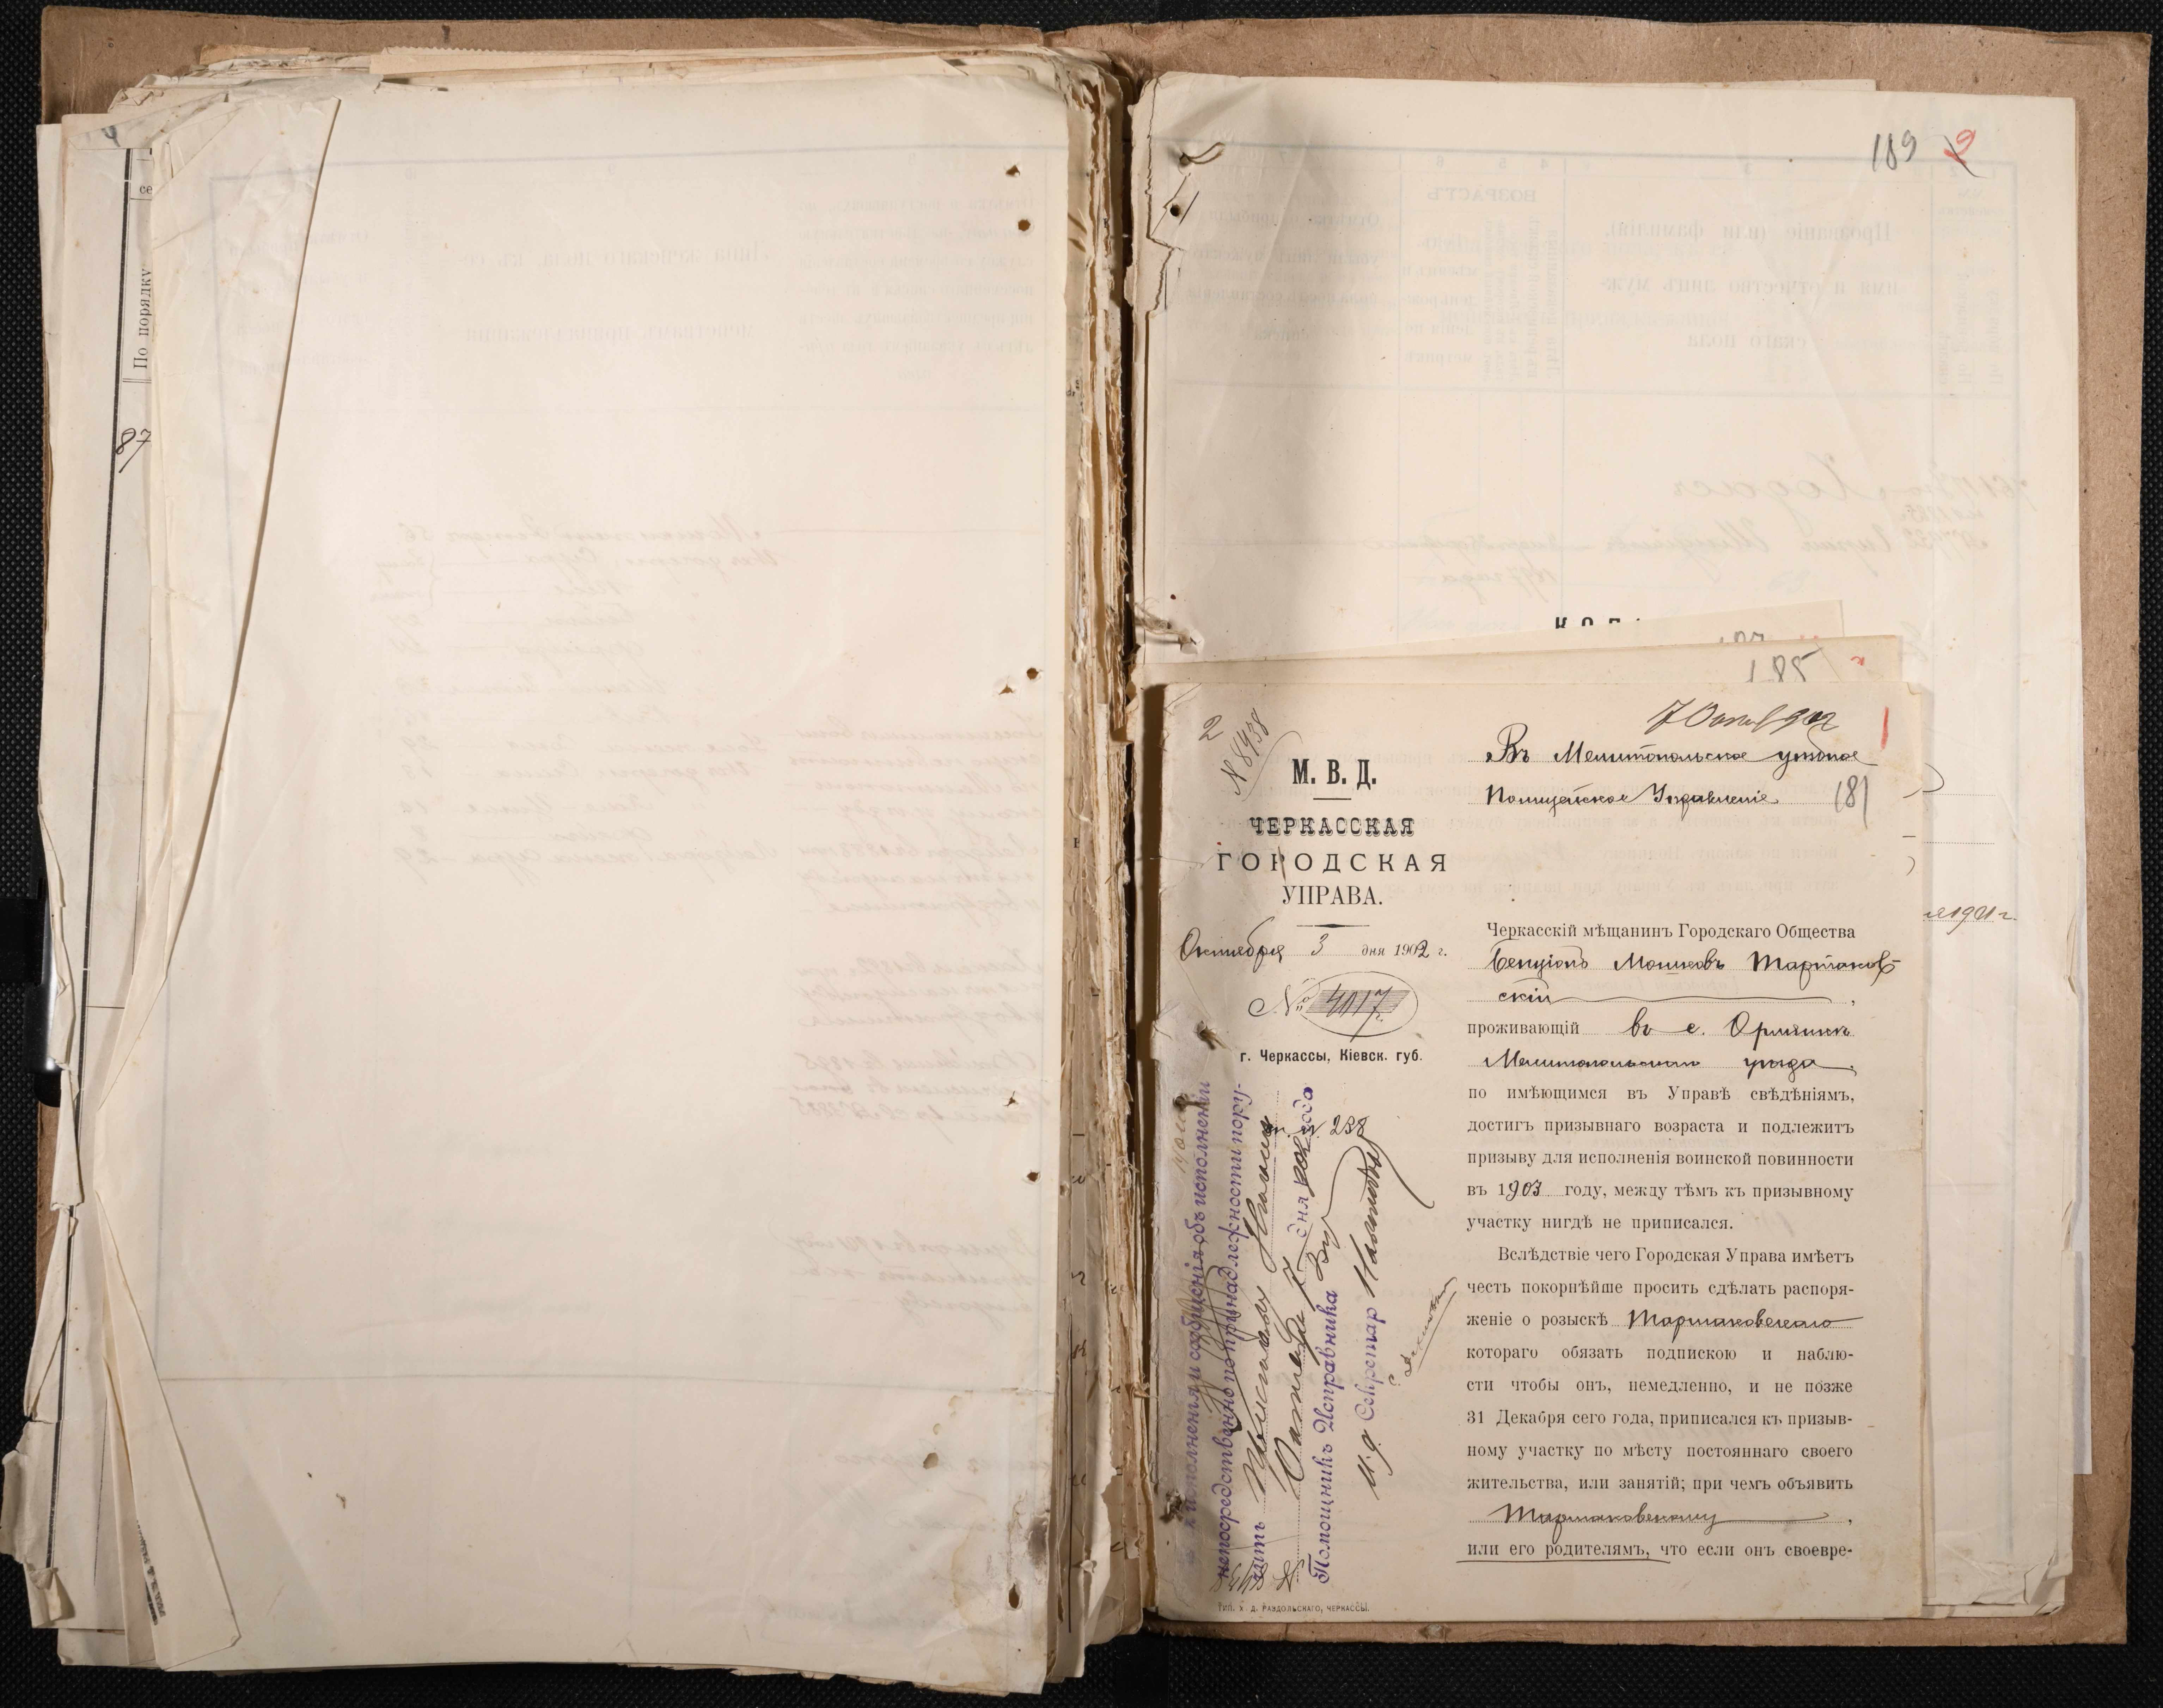 се
По порядку
87
189 9
185
7 Окт 902
2
N 8438
М. В. Д.
ЧЕРКАССКАЯ
ГОРОДСКАЯ
УПРАВА.
Октября 3 дня 1902 г.
№ 4017
г. Черкассы, Кіевск. губ.
Въ Мелитопольское уѣздное
Полицейское Управленіе
181
1901 г.
Черкасскій мѣщанинъ Городскаго Общества
Бенціонъ Мошковъ Тартаков-
скій,
проживающій въ с. Орлянск
Мелитопольскаго уѣзда,
по имѣющимся въ Управѣ свѣдѣніямъ,
достигъ призывнаго возраста и подлежитъ
призыву для исполненія воинской повинности
въ 1903 году, между тѣмъ къ призывному
участку нигдѣ не приписался.
Вслѣдствіе чего Городская Управа имѣетъ
честь покорнѣйше просить сдѣлать распоря-
женіе о розыскѣ Тартаковскаго
котораго обязать подпискою и наблю-
сти чтобы онъ, немедленно, и не позже
31 Декабря сего года, приписался къ призыв-
ному участку по мѣсту постояннаго своего
жительства, или занятій; при чемъ объявить
Тартаковскому,
или его родителямъ, что если онъ своевре-
исполненія и сообщенія объ исполненіи
непосредственно по принадлежности пору-
чить
Октября 7 дня 1902 года
Помощникъ Исправника
И. д. Секретар
238
8438
Тип. Х. Д. РАЗДОЛЬСКАГО, ЧЕРКАССЫ.